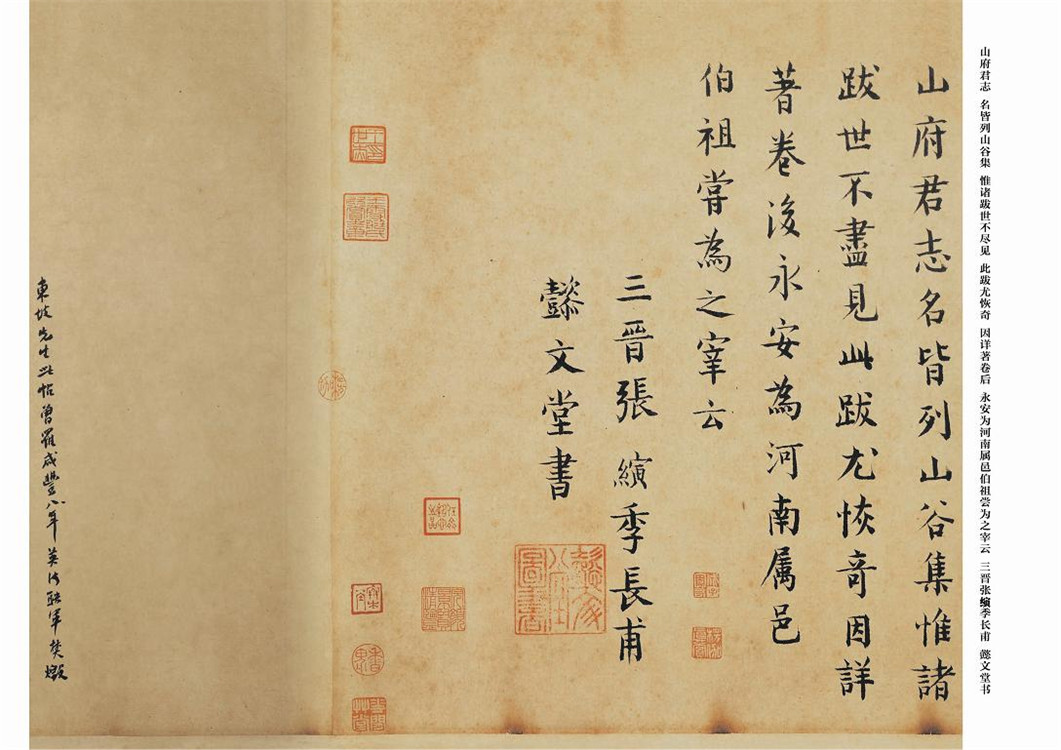 山府君志 名皆列山谷集 惟诸跋世不尽见 此跋尤恢奇 因详著卷后 永安为河南属邑伯祖尝为之宰云 三晋张縯季长甫 懿文堂书
山府君志名皆列山谷集惟諸
跋世不盡見此跋尤恢奇因詳
著卷後永安為河南属邑
伯祖嘗為之宰云
三晋張縯季長甫
懿文堂書
東坡先生此帖曾羅咸豐八年英法聯軍焚燬